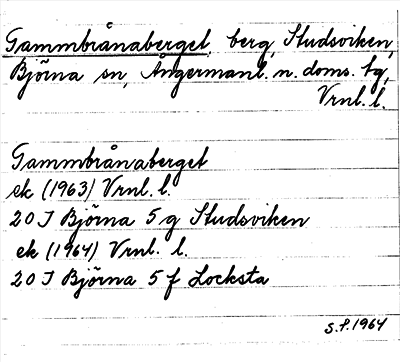 Gammbrånaberget, berg, Studsviken,
Björna sn, Ångermanl. n. doms. tg,
Vrnl. l.
Gammbrånaberget
ek (1963) Vrnl. l.
20 J Björna 5 g Studsviken
ek (1964) Vrnl. l.
20 J Björna 5 f Locksta
S.P. 1964